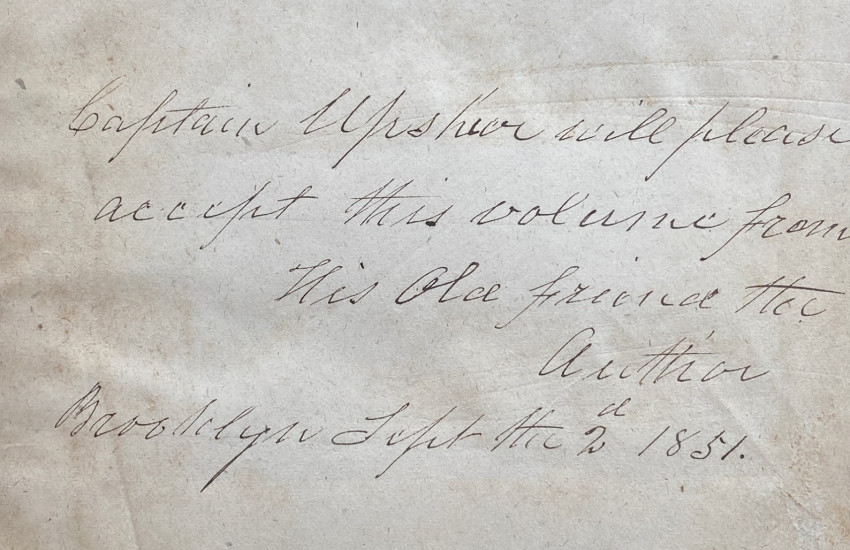 Captain Upshur will please
accept this volume from
His Old friend the
Author
Brooklyn Sept the 2d 1851.